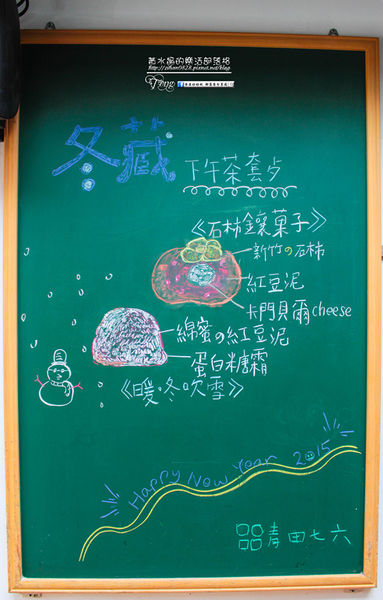 黃水晶的樂活部落格
冬藏
下午茶套夕
《石柿鑲菓子》
新竹の石柿
紅豆泥
卡門貝爾cheese
綿蜜の紅豆泥
蛋白糖霜
《暖冬吹雪》
Happy New Year 2015
青田七六